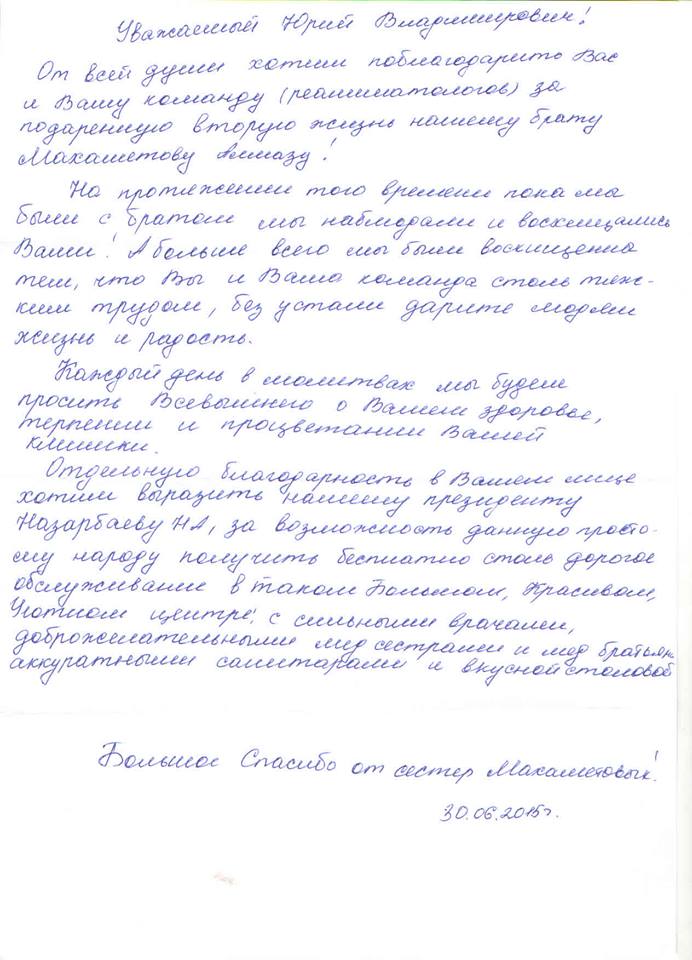 Уважаемый Юрий Владимирович!
От всей души хотим поблагодарить Вас
и Вашу команду (реаниматологов) за
подаренную вторую жизнь нашему брату
Махаметову Алмазу!
На протяжении того времени пока мы
были с братом мы наблюдали и восхищались
Вами! А больше всего мы были восхищены
тем, что Вы и Ваша команда столь тяж-
ким трудом, без устали дарите людям
жизнь и радость.
Каждый день в молитвах мы будем
просить Всевышнего о Вашем здоровье,
терпении и процветании Вашей
клиники.
Отдельную благодарность в Вашем лице
хотим выразить нашему президенту
Назарбаеву НА, за возможность данную просто-
му народу получить бесплатно столь дорогое
обслуживание в таком Большом, Красивом,
Уютном центре, с сильными врачами,
доброжелательными мед сестрами и мед братьями
аккуратными санитарами и вкусной столовой
Большое Спасибо от сестер Махаметовых!
30.06.2015г.